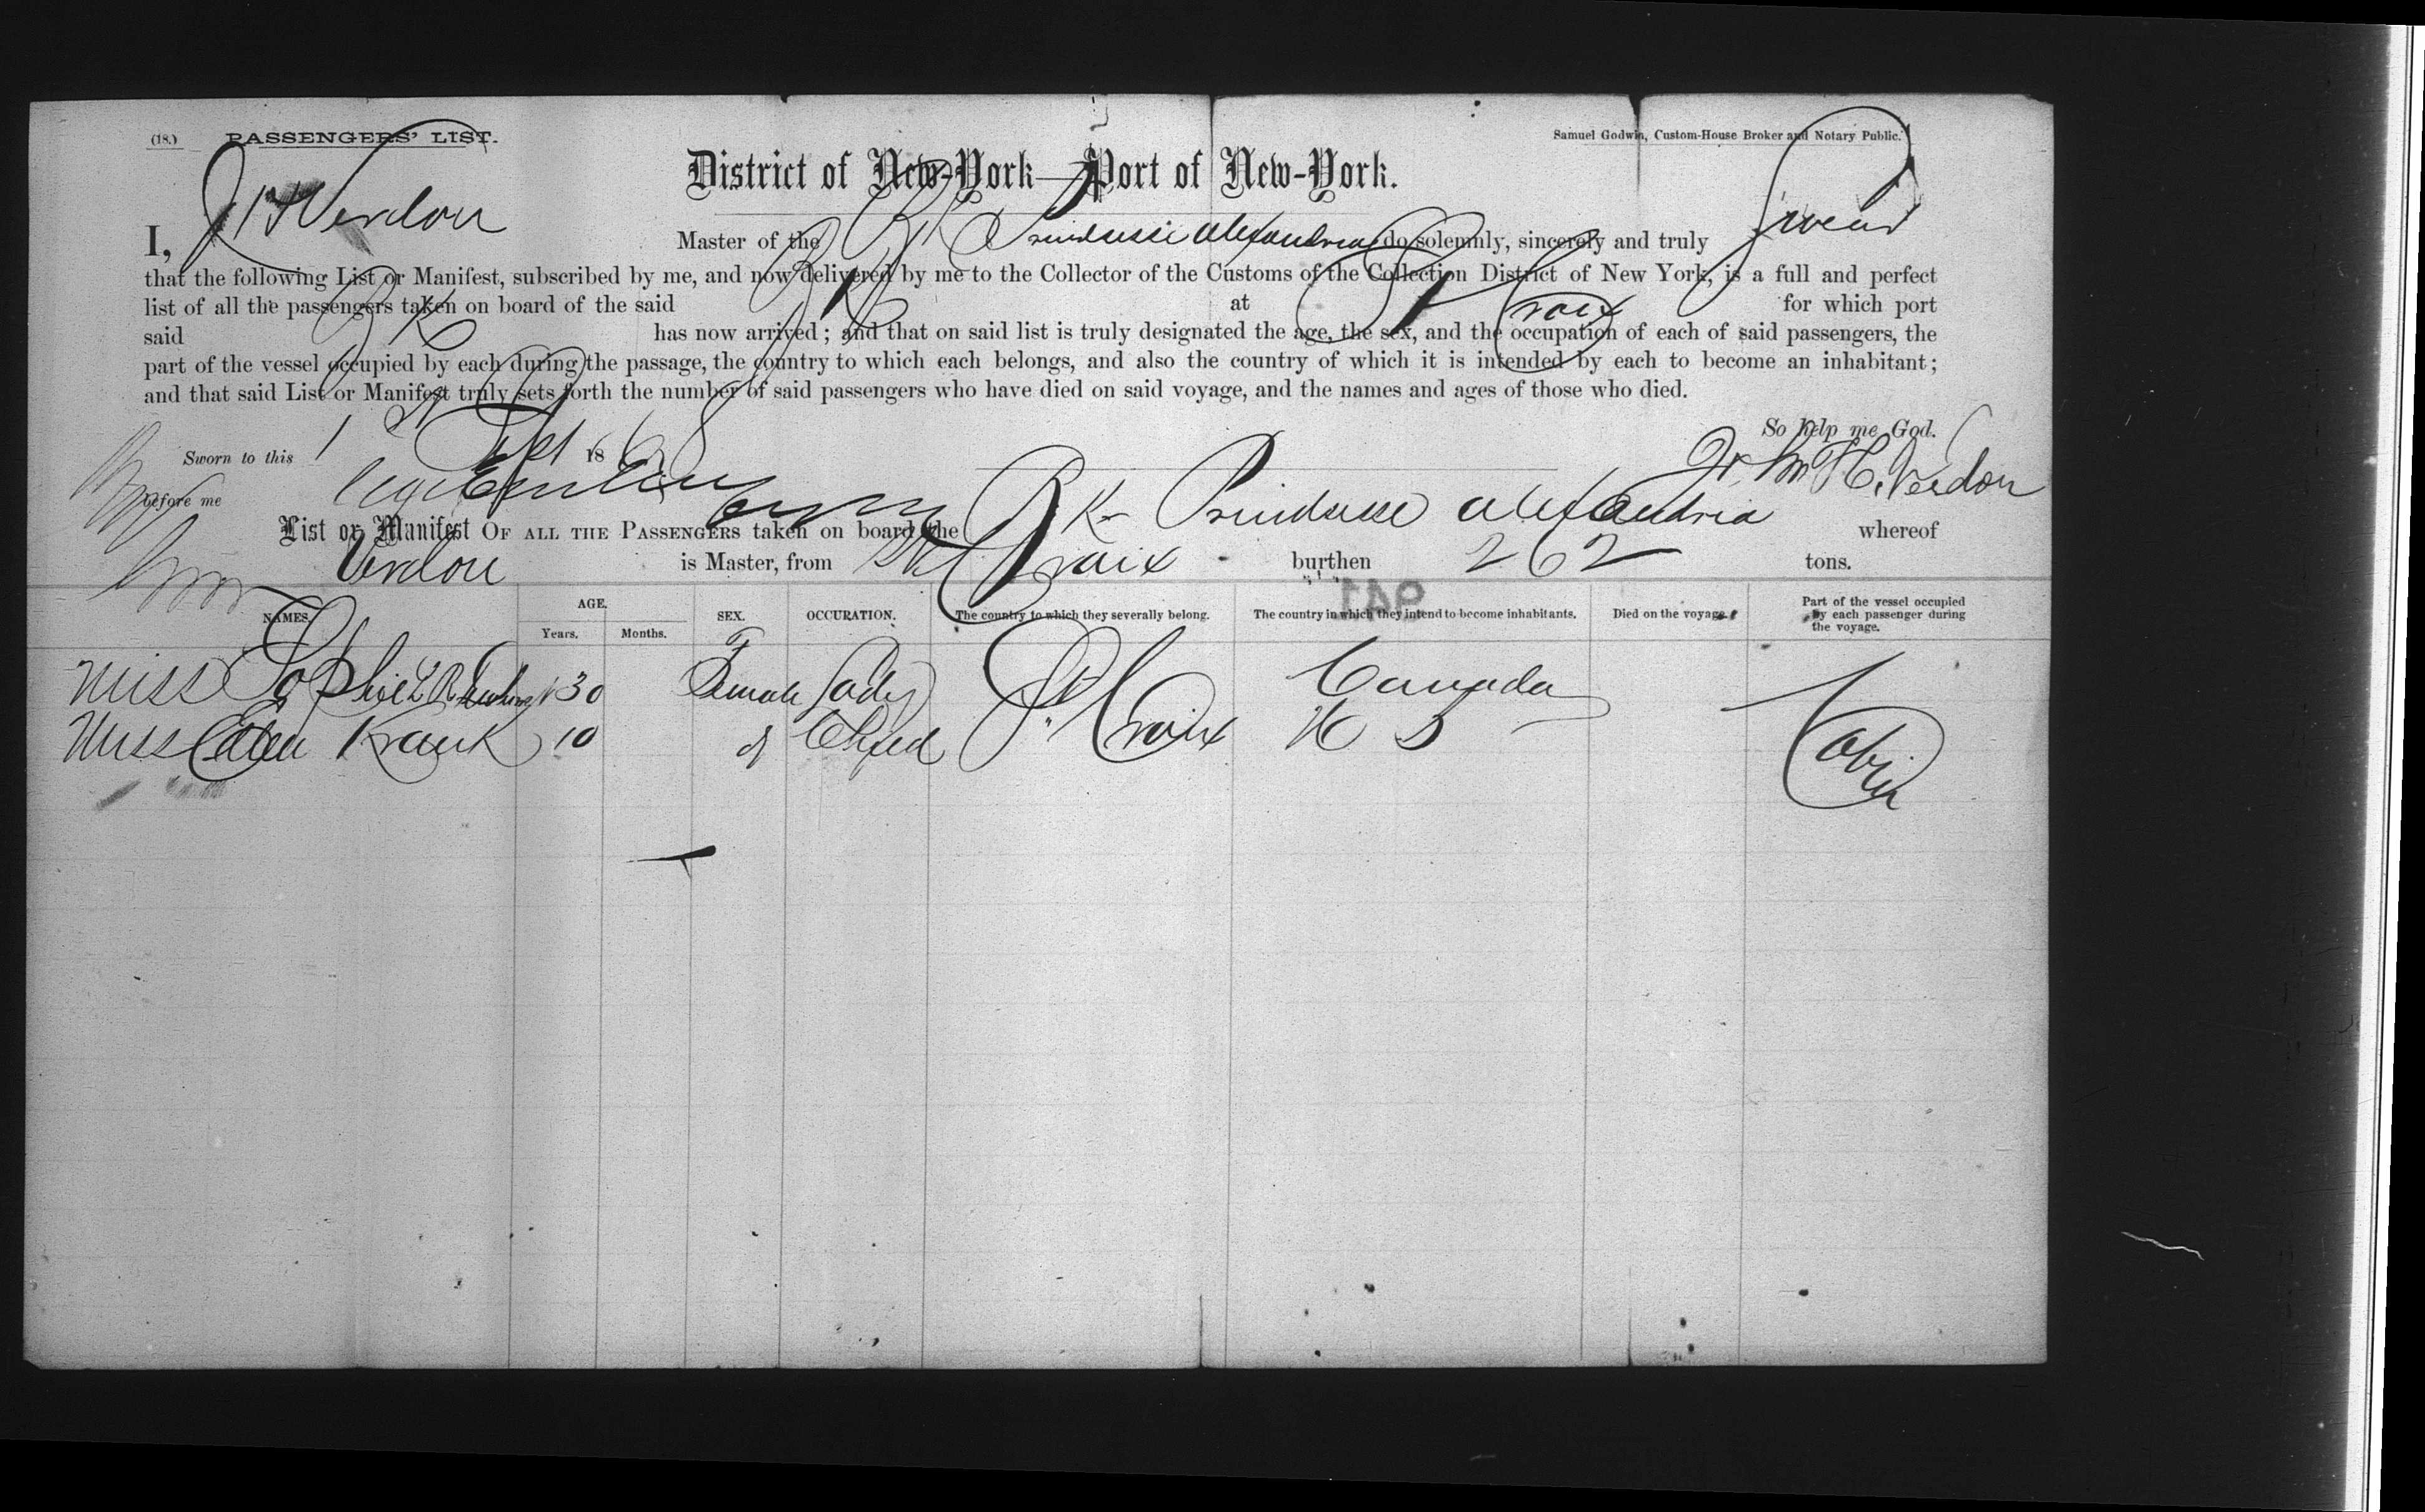 (18.) PASSENGERS' LIST.
Samuel Godwin, Custom-House Broker and Notary Public.
District of New-York—Port of New-York.
I, J H Verdon Master of the Bk Prindsesse Alexandria do solemnly, sincerely and truly swear
that the following List or Manifest, subscribed by me, and now delivered by me to the Collector of the Customs of the Collection District of New York, is a full and perfect
list of all the passengers taken on board of the said Bk at St Croix for which port
said Bk has now arrived; and that on said list is truly designated the age, the sex, and the occupation of each of said passengers, the
part of the vessel occupied by each during the passage, the country to which each belongs, and also the country of which it is intended by each to become an inhabitant;
and that said List or Manifest truly sets forth the number of said passengers who have died on said voyage, and the names and ages of those who died.
So help me God.
Sworn to this 1 Sept 1868
H. Verdon
before me
List or Manifest OF ALL THE PASSENGERS taken on board the Bk Prindsesse Alexandria whereof
Verdon is Master, from St Croix burthen 262 tons.
941
NAMES. AGE. Years. Months. SEX. OCCUPATION. The country to which they severally belong. The country in which they intend to become inhabitants. Died on the voyage. Part of the vessel occupied by each passenger during the voyage.
Miss Sophie 30 Female Lady St Croix Canada
Miss Ellen Krauk 10 d Child St Croix U S Cabin